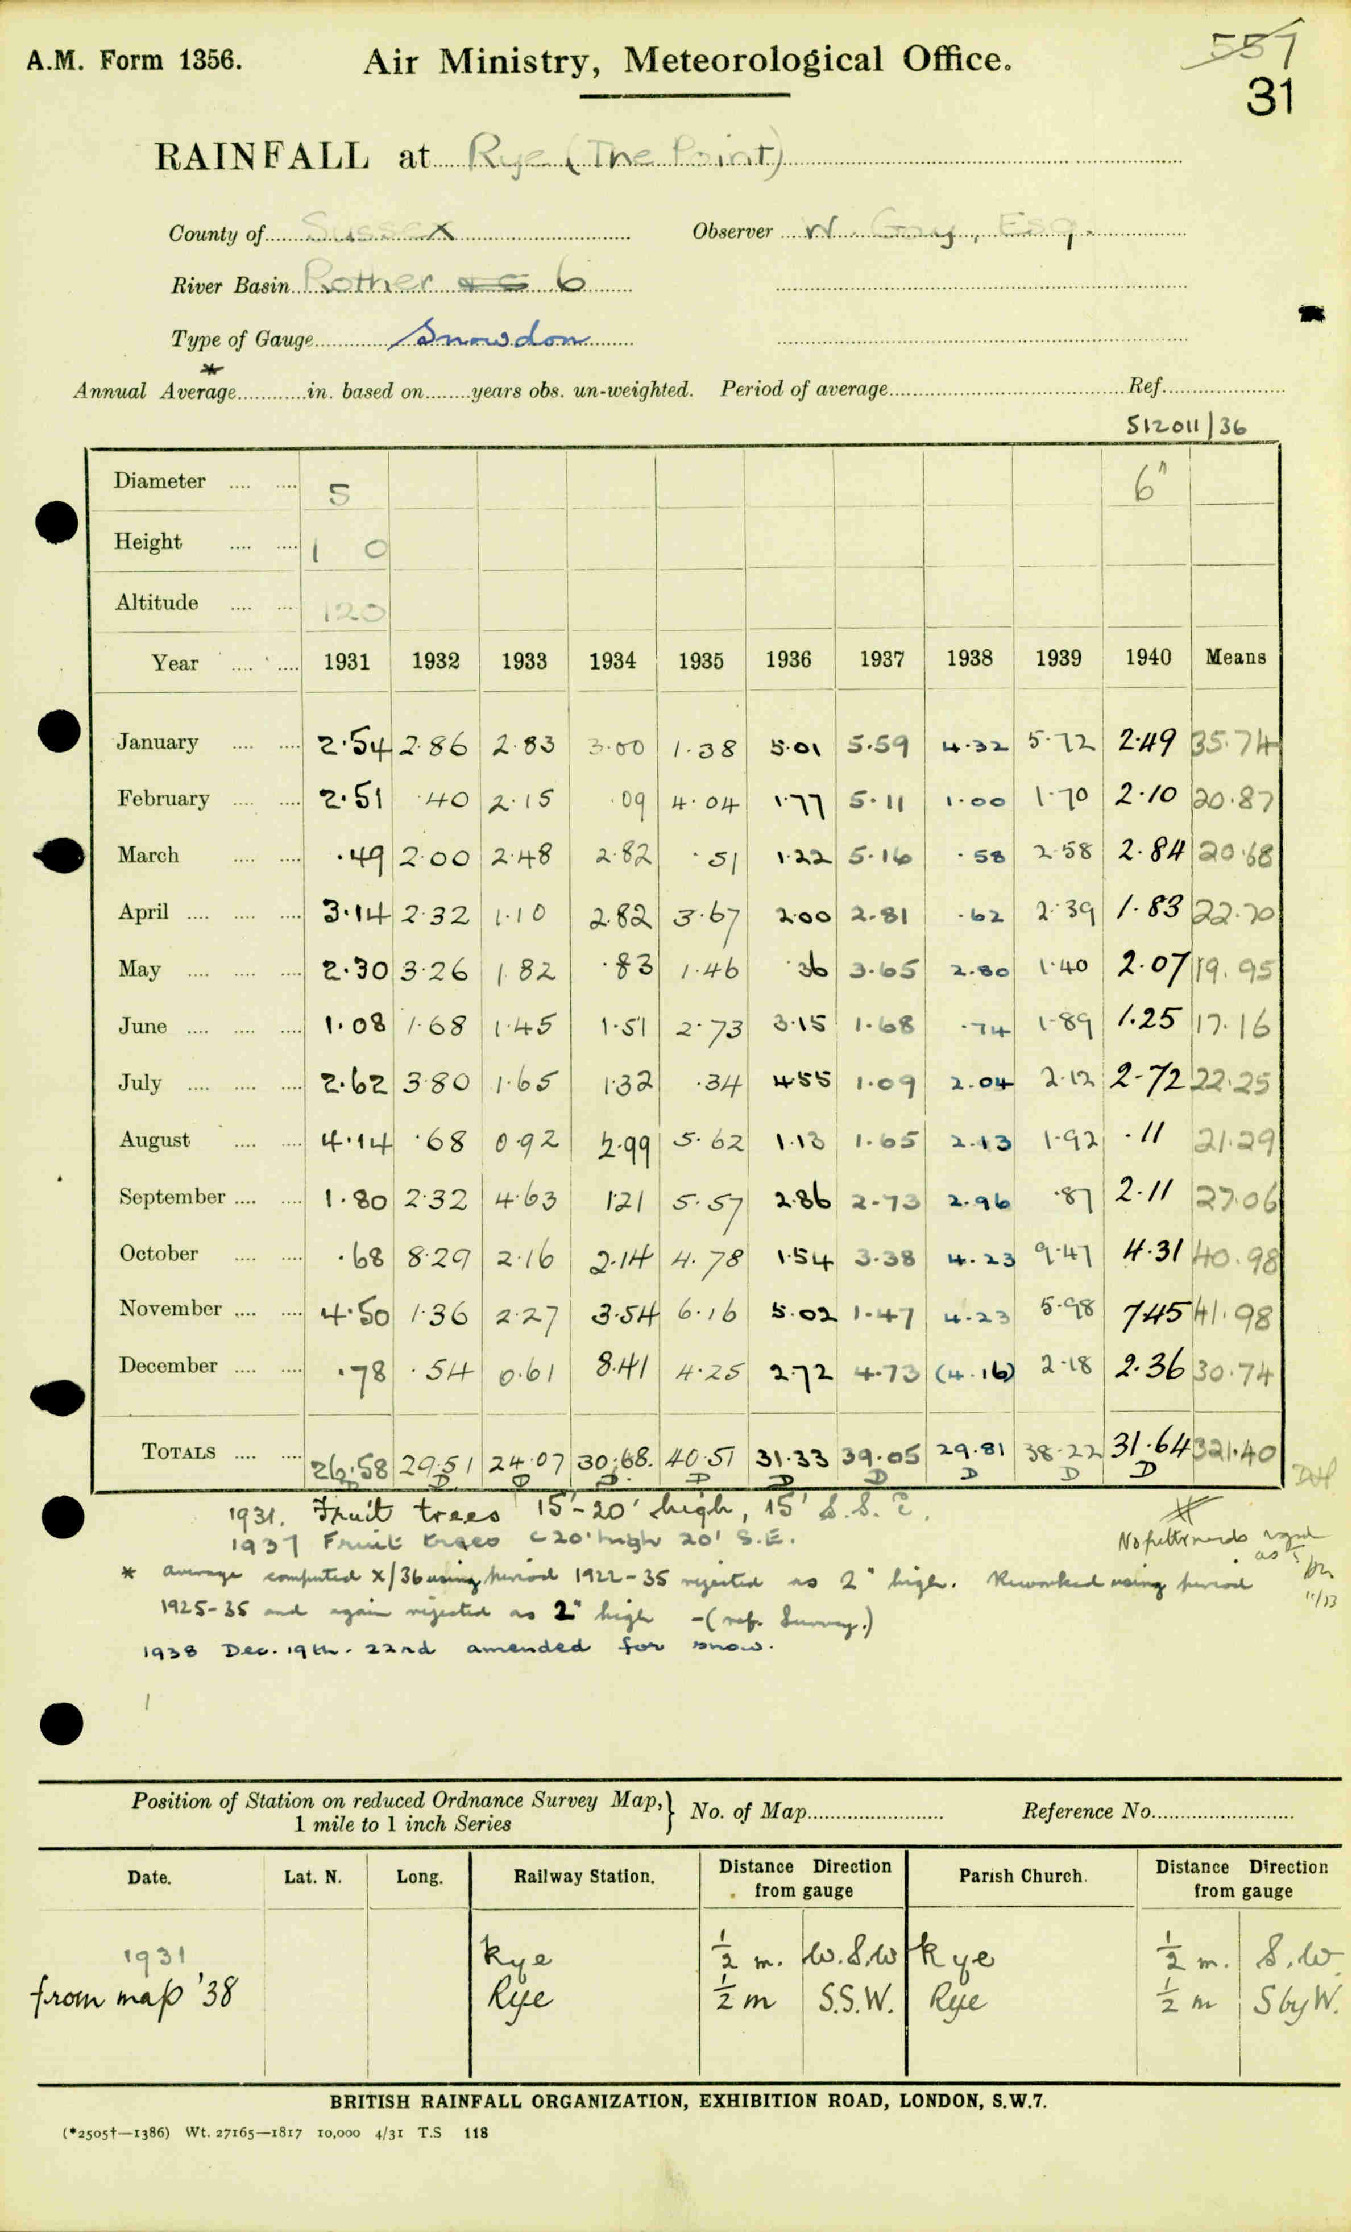 A.M. Form 1356. Air Ministry, Meteorological Office. 557
31
RAINFALL at Rye (The Point)
County of Sussex Observer W. Gray, Esq.
River Basin Rother 6
Type of Gauge Snowdon
*
Annual Average in. based on years obs. un-weighted. Period of average Ref.
512011/36
Diameter 5 6"
Height 1 0
Altitude 120
Year 1931 1932 1933 1934 1935 1936 1937 1938 1939 1940 Means
January 2.54 2.86 2.83 3.00 1.38 5.01 5.59 4.32 5.72 2.49 35.74
February 2.51 .40 2.15 .09 4.04 1.77 5.11 1.00 1.70 2.10 20.87
March .49 2.00 2.48 2.82 .51 1.22 5.16 .58 2.58 2.84 20.68
April 3.14 2.32 1.10 2.82 3.67 2.00 2.81 .62 2.39 1.83 22.70
May 2.30 3.26 1.82 .83 1.46 .36 3.65 2.80 1.40 2.07 19.95
June 1.08 1.68 1.45 1.51 2.73 3.15 1.68 .74 1.89 1.25 17.16
July 2.62 3.80 1.65 1.32 .34 4.55 1.09 2.04 2.12 2.72 22.25
August 4.14 .68 0.92 2.99 5.62 1.13 1.65 2.13 1.92 .11 21.29
September 1.80 2.32 4.63 1.21 5.57 2.86 2.73 2.96 .87 2.11 27.06
October .68 8.29 2.16 2.14 4.78 1.54 3.38 4.23 9.47 4.31 40.98
November 4.50 1.36 2.27 3.54 6.16 5.02 1.47 4.23 5.98 7.45 41.98
December .78 .54 0.61 8.41 4.25 2.72 4.73 (4.16) 2.18 2.36 30.74
TOTALS 26.58 29.51 24.07 30.68. 40.51 31.33 39.05 29.81 38.22 31.64 321.40
D D D D D D D D D D
1931. Fruit trees 15'-20' high, 15' S.S.E.
1937 Fruit trees c20' high 20' S.E.
* average computed X/36 using period 1922-35 rejected as 2" high. Reworked using period
1925-35 and again rejected as 2" high - (ref. Survey.)
1938 Dec. 19th. 22nd amended for snow.
Position of Station on reduced Ordnance Survey Map, } No. of Map Reference No.
1 mile to 1 inch Series
Date. Lat. N. Long. Railway Station. Distance Direction from gauge Parish Church. Distance Direction from gauge
1931 Rye ½ m. W.S.W Rye ½ m. S.W.
from map '38 Rye ½ m S.S.W. Rye ½ m S by W.
BRITISH RAINFALL ORGANIZATION, EXHIBITION ROAD, LONDON, S.W.7.
(*2505†—1386) Wt. 27165—1817 10,000 4/31 T.S 118